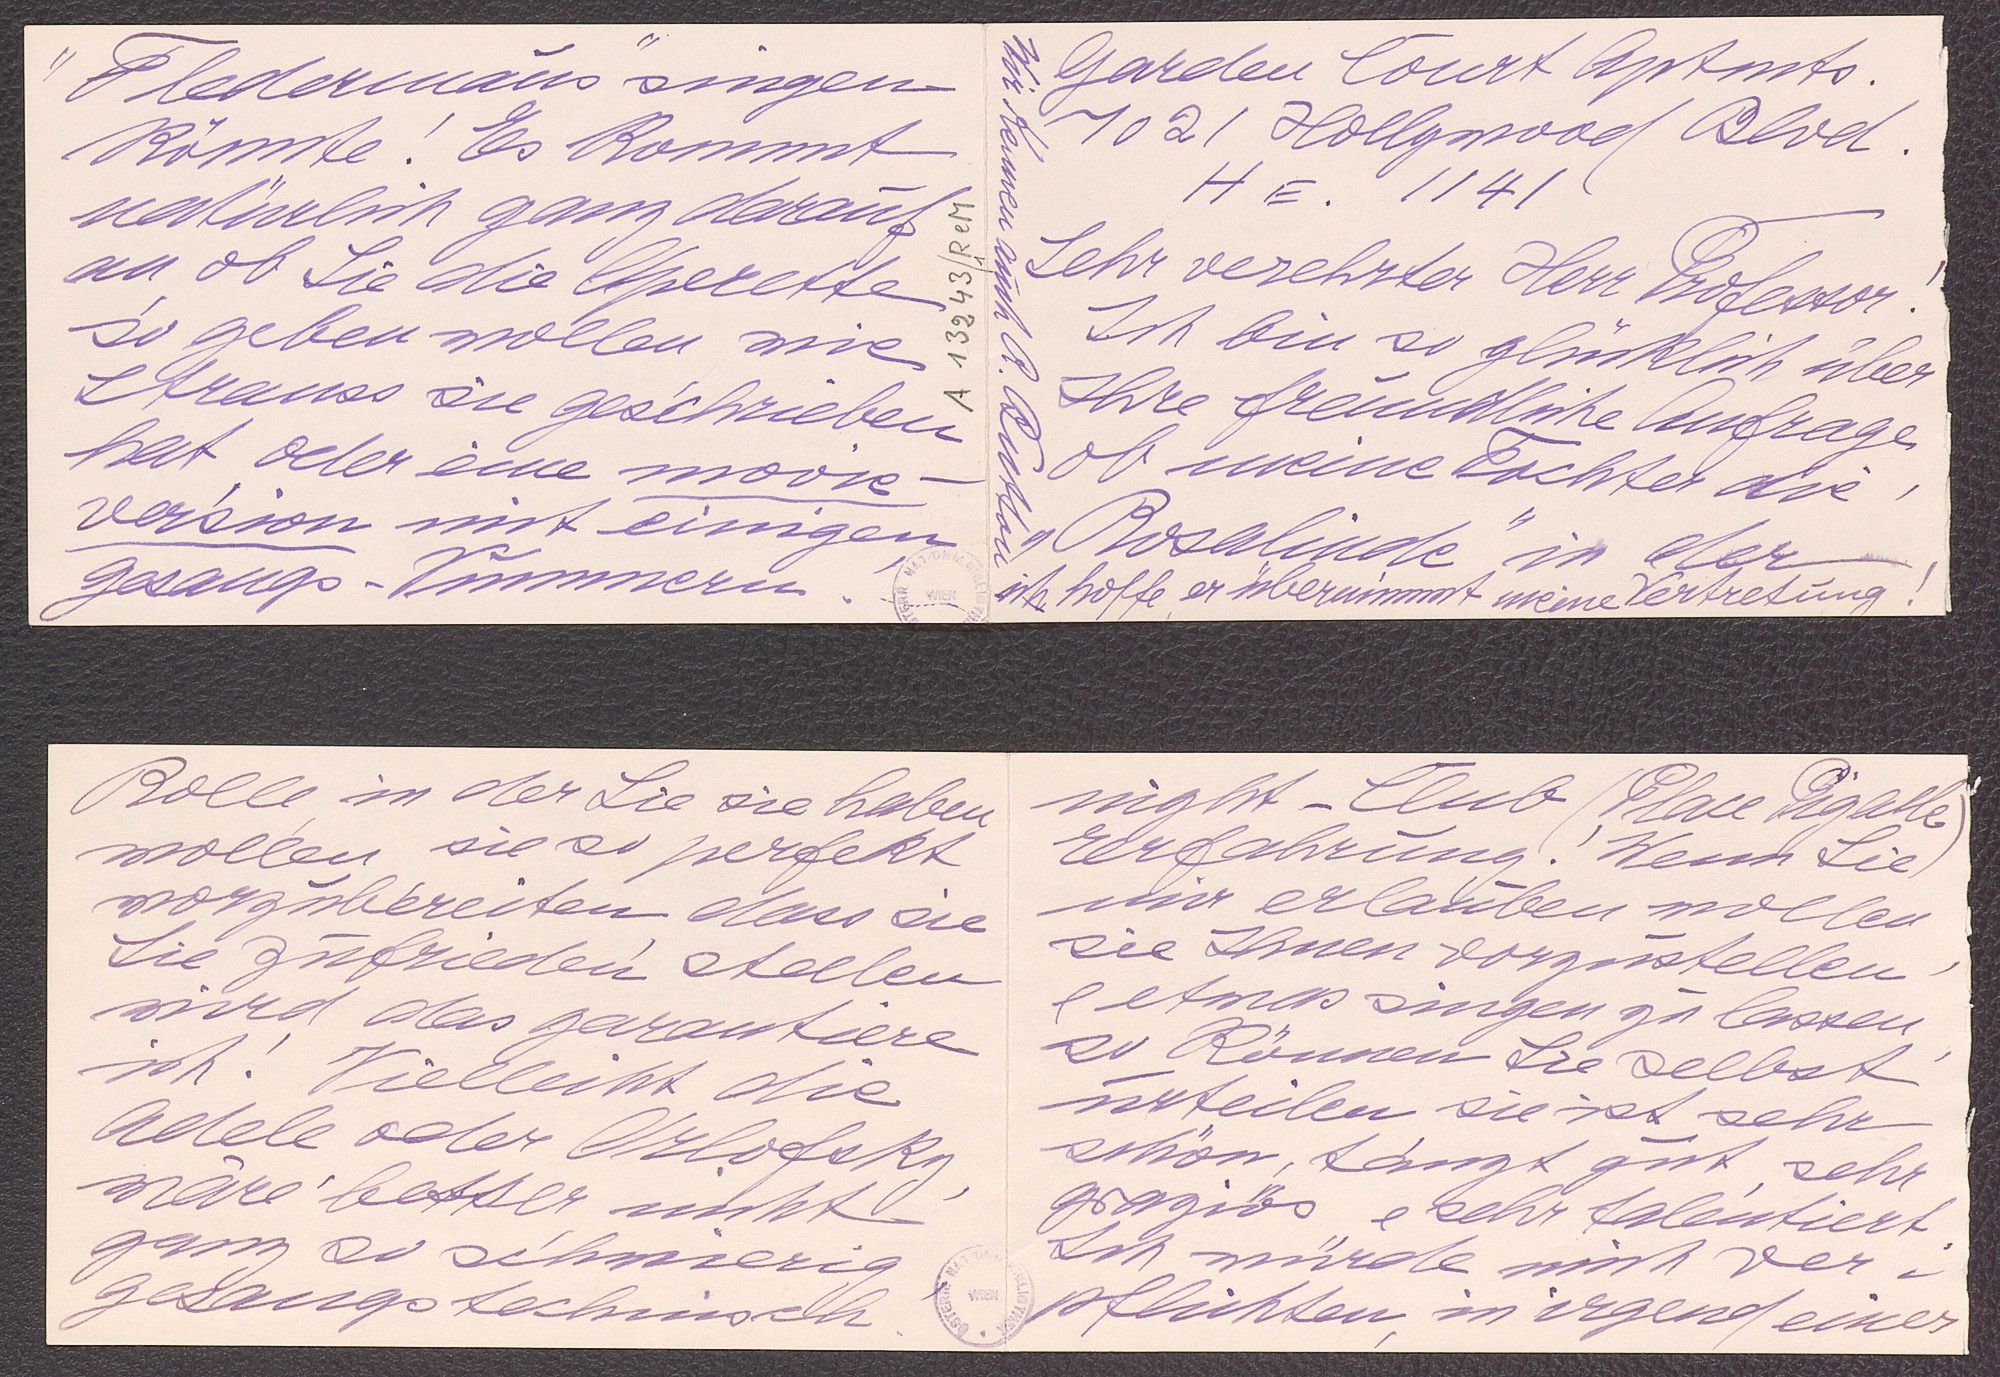 Garden Court Aptmts.
7021 Hollywood Blvd.
HE. 1141
Sehr verehrter Herr Professor!
Ich bin so glücklich über
Ihre freundliche Anfrage,
ob meine Tochter die
"Rosalinde" in der
ich hoffe, er übernimmt meine Vertretung!
Wir kennen auch P.
"Fledermaus" singen
könnte! Es kommt
natürlich ganz darauf
an ob Sie die Operette
so geben wollen wie
Strauss sie geschrieben
hat, oder eine movie-
version mit einigen
Gesangs-Nummern.
A 13243/ReM
ÖSTERR. NATIONALBIBLIOTHEK
WIEN
night-Club (Place Pigalle)
Erfahrung! Wenn Sie
mir erlauben wollen
sie Ihnen vorzustellen,
e etwas singen zu lassen,
so können Sie selbst
urteilen sie ist sehr
schön, tanzt gut, sehr
graziös e sehr talentiert.
Ich würde mich ver-
pflichten, in irgend einer
Rolle, in der Sie sie haben
wollen, sie so perfekt
vorzubereiten dass sie
Sie zufrieden stellen
wird, das garantiere
ich! Vielleicht die
Adele oder Orlofsky,
wäre besser nicht
ganz so schwierig
gesangstechnisch.
ÖSTERR. NATIONALBIBLIOTHEK
WIEN